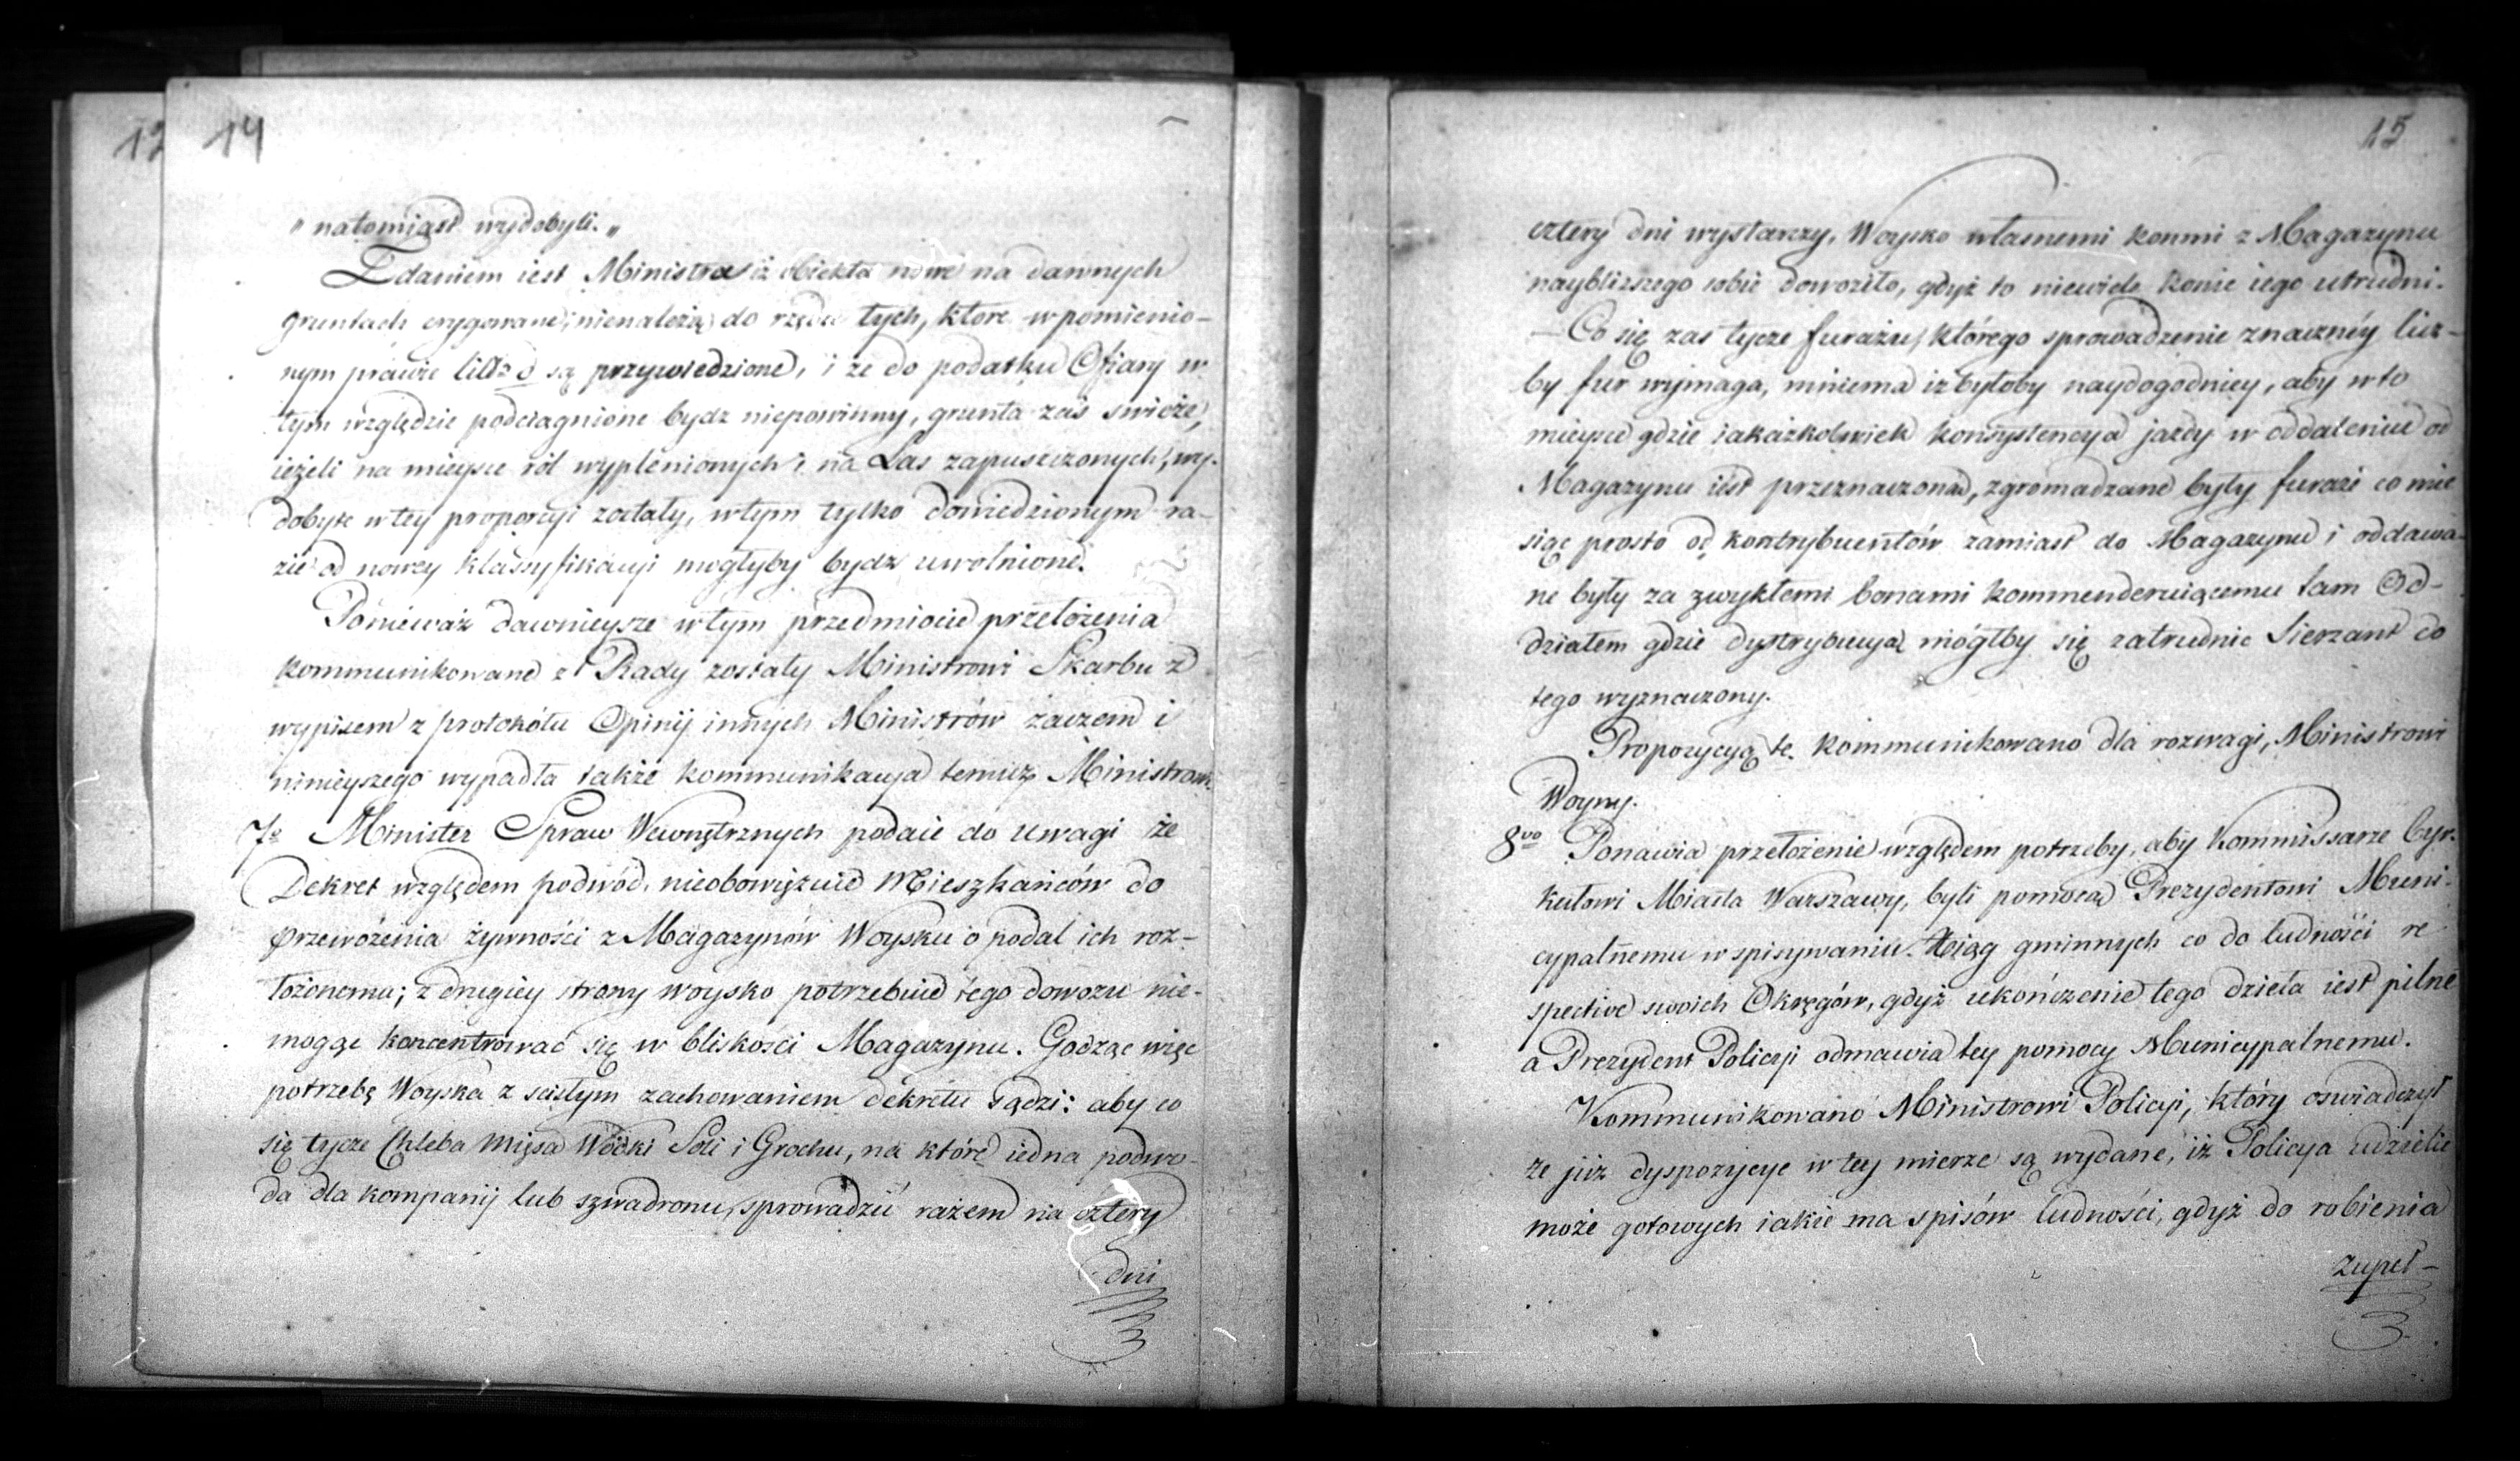 12
14
„ natomiast wydobyli. „
Zdaniem iest Ministra iż obiekta nowe na dawnych
gruntach erygowane; nienależą do rzędu tych, ktore wpomienio-
nym prawie są przywiedzione, i że do podatku Ofiary w
tym względzie podciągnione bydz niepowinny, grunta zaś swieże,
ieżeli na mieysce ról wyplenionych i na Las zapuszczonych, wy-
dobyte wtey proporcyi zostały, wtym tylko dowiedzionym ra-
zie od nowey klassyfikacyi mogłyby bydz uwolnione.
Ponieważ dawnieysze wtym przedmiocie przełożenia
kommunikowane z Rady zostały Ministrowi Skarbu z
wypisem z protokółu Opinij innych Ministrów zaczem i
ninieyszego wypadła także kommunikacya temuż Ministrowi.
7o Minister Spraw Wewnętrznych podaie do uwagi że
Dekret względem podwód, nieobowięzuie Mieszkańców do
przewożenia żywności z Magazynów Woysku opodal ich roz-
łożonemu; z drugiey strony woysko potrzebuie tego dowozu nie-
mogąc koncentrować się w bliskości Magazynu. Godząc więc
potrzebę Woyska z scisłym zachowaniem dekretu sądzi: aby co
się tycze Chleba Mięsa Wódki Soli i Grochu, na które iedna podwo-
da dla kompanij lub szwadronu, sprowadzić razem na cztery
dni
15
cztery dni wystarczy, Woysko własnemi konmi z Magazynu
naybliższego sobie dowoziło, gdyż to niewiele konie iego utrudni.
— Co się zas tycze furażu, którego sprowadzenie znacznéy licz-
by fur wymaga, mniema iż byłoby naydogodniey, aby wto
mieysce gdzie iakażkolwiek konsystencya jazdy w oddaleniu od
Magazynu iest przeznaczona, zgromadzane były furaże co mie
siąc prosto od kontrybuentów zamiast do Magazynu i oddawa-
ne były za zwykłemi bonami kommenderuiącemu tam Od-
działem gdzie dystrybucyą mógłby się zatrudnic Sierżant do
tego wyznaczony.
Propozycyą te kommunikowano dla rozwagi, Ministrowi
Woyny.
8vo Ponawia przełożenie względem potrzeby, aby Kommissarze Cyr-
kułowi Miasta Warszawy, byli pomocą Prezydentowi Muni-
cypalnemu w spisywaniu Xiąg gminnych co do ludności re
spective swoich Okręgów, gdyż ukończenie tego dzieła iest pilne
a Prezydent Policyi odmawia tey pomocy Municypalnemu.
Kommunikowano Ministrowi Policyi, który oswiadczył
że już dyspozycye w tey mierze są wydane, iż Policya udzielić
może gotowych iakie ma spisów ludności, gdyż do robienia
zupeł-